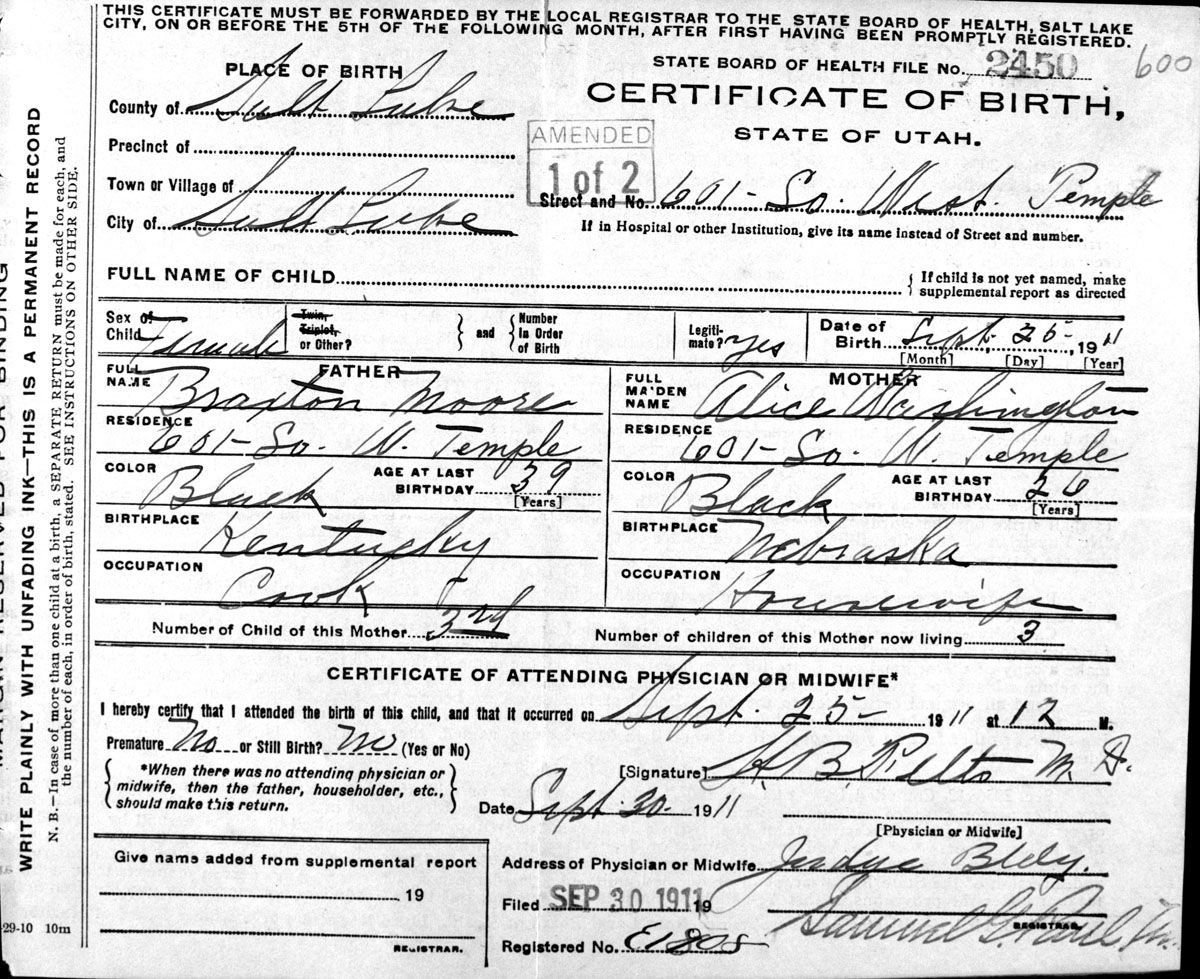 THIS CERTIFICATE MUST BE FORWARDED BY THE LOCAL REGISTRAR TO THE STATE BOARD OF HEALTH, SALT LAKE
CITY, ON OR BEFORE THE 5TH OF THE FOLLOWING MONTH, AFTER FIRST HAVING BEEN PROMPTLY REGISTERED.
STATE BOARD OF HEALTH FILE No. 2450 600
CERTIFICATE OF BIRTH,
STATE OF UTAH.
AMENDED
1 of 2
PLACE OF BIRTH
County of Salt Lake
Precinct of
Town or Village of
City of Salt Lake
Street and No. 601 - So. West. Temple
If in Hospital or other Institution, give its name instead of Street and number.
FULL NAME OF CHILD
If child is not yet named, make
supplemental report as directed
Sex of Child Female
Twin, Triplet, or Other?
and
Number in Order of Birth
Legitimate? Yes
Date of Birth Sept. 25 - 1911
[Month] [Day] [Year]
FATHER
FULL NAME Braxton Moore
RESIDENCE 601 - So. W. Temple
COLOR Black AGE AT LAST BIRTHDAY 39 [Years]
BIRTHPLACE Kentucky
OCCUPATION Cook
MOTHER
FULL MAIDEN NAME Alice Washington
RESIDENCE 601 - So. W. Temple
COLOR Black AGE AT LAST BIRTHDAY 26 [Years]
BIRTHPLACE Nebraska
OCCUPATION Housewife
Number of Child of this Mother 3rd Number of children of this Mother now living 3
CERTIFICATE OF ATTENDING PHYSICIAN OR MIDWIFE*
I hereby certify that I attended the birth of this child, and that it occurred on Sept. 25 - 1911 at 12 M.
Premature No or Still Birth? No (Yes or No)
*When there was no attending physician or
midwife, then the father, householder, etc.,
should make this return.
[Signature] B M. D.
Date Sept. 30. 1911
[Physician or Midwife]
Give name added from supplemental report
19
REGISTRAR.
Address of Physician or Midwife Judge Bldg.
Filed SEP 30 1911 19
Samuel G. Paul
REGISTRAR.
Registered No. E1808
WRITE PLAINLY WITH UNFADING INK—THIS IS A PERMANENT RECORD
N. B.—In case of more than one child at a birth, a SEPARATE RETURN must be made for each, and
the number of each, in order of birth, stated. SEE INSTRUCTIONS ON OTHER SIDE.
29-10 10m